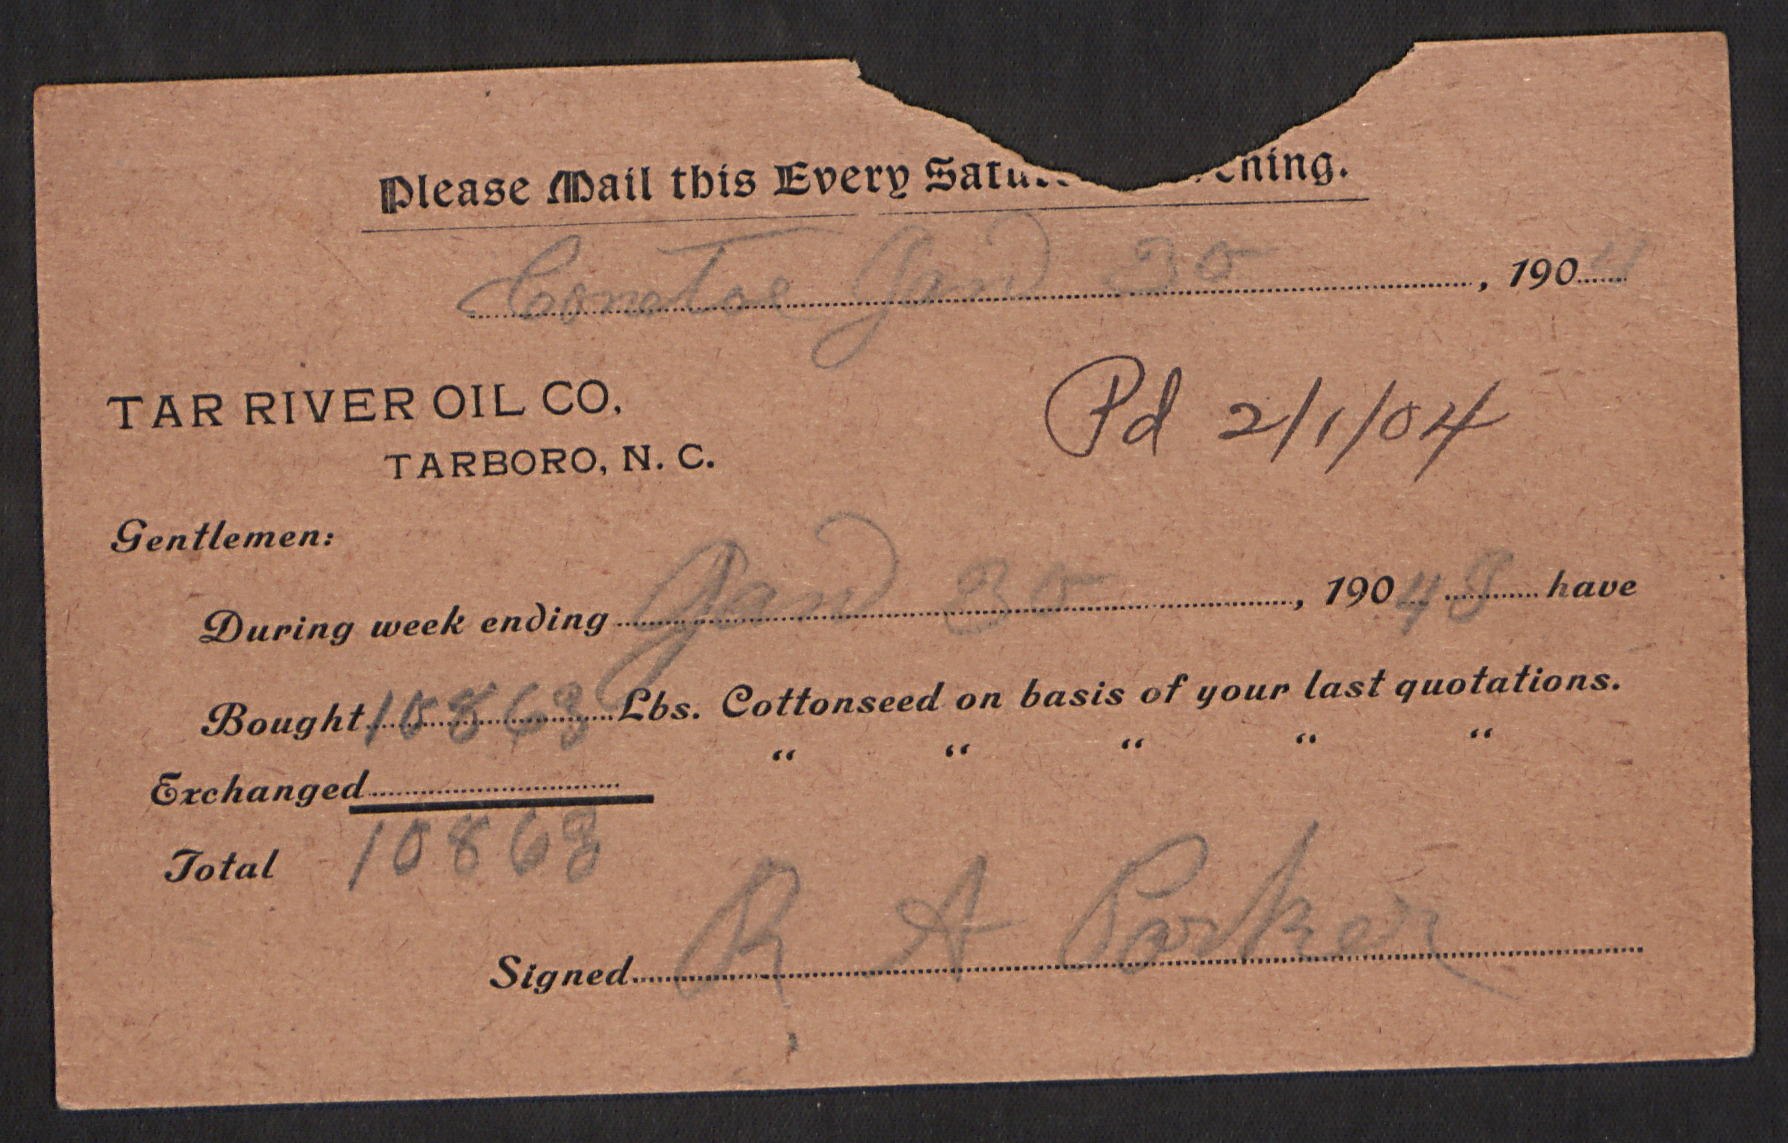 Please Mail this Every Satu ening.
Conetoe Jan 30, 1904
TAR RIVER OIL CO,
TARBORO, N. C.
Pd 2/1/04
Gentlemen:
During week ending Jan 30, 1904 have
Bought 10863 Lbs. Cottonseed on basis of your last quotations.
Exchanged " " " " "
Total 10863
Signed R A Parker